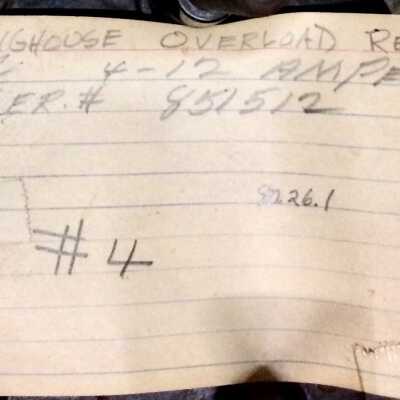 NGHOUSE OVERLOAD RE
4-12 AMPE
ER.# 851512
82.26.1
#4